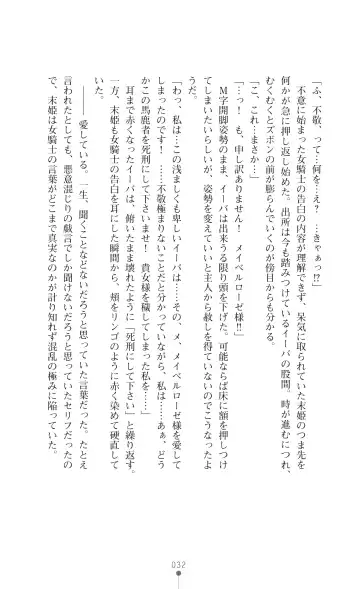 「ふ、不敬、って…何を…え？　…きゃぁっ!?」
　不意に始まった女騎士の告白の内容が理解できず、呆気に取られていた末姫のつま先を
何かが急に押し返し始めた。出所は今も踏みつけているイーバの股間。時が進むにつれ、
むくむくとズボンの前が膨らんでいくのが傍目からも分かる。
「こ、これ…まさか…」
「…っ！　も、申し訳ありません！　メイベルローゼ様!!」
　Ｍ字開脚姿勢のまま、イーバは出来うる限り頭を下げた。可能ならば床に額を押しつけ
てしまいたいらしいが、姿勢を変えていいと主人から赦しを得ていないのでこうなったよ
うだ。
「わっ、私は…この浅ましくも卑しいイーバは……その、メ、メイベルローゼ様を愛して
しまったのです！　……不敬極まりないことだと分かっていながら、私は……あぁ、どう
かこの馬鹿者を死刑にして下さいませ！　貴女様を穢してしまった私を……」
　耳まで赤くなったイーバは、俯いたまま壊れたように「死刑にして下さい」と繰り返す。
一方、末姫も女騎士の告白を耳にした瞬間から、頬をリンゴのように赤く染めて硬直して
いた。
　――愛している。一生、聞くことなどないだろうと思っていた言葉だった。たとえ
言われたとしても、悪意混じりの戯言でしか聞けないだろうと思っていたセリフだったの
で、末姫は女騎士の言葉がどこまで真実なのかが計り知れず混乱の極みに陥っていた。
032